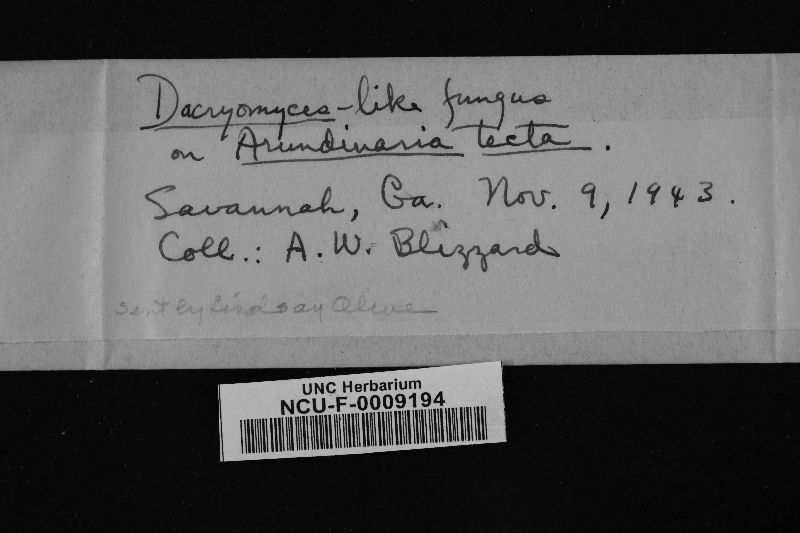 Dacryomyces-like fungus
on Arundinaria tecta.
Savannah, Ga. Nov. 9, 1943.
Coll.: A. W. Blizzard
Sent by Lindsay Olive
UNC Herbarium
NCU-F-0009194